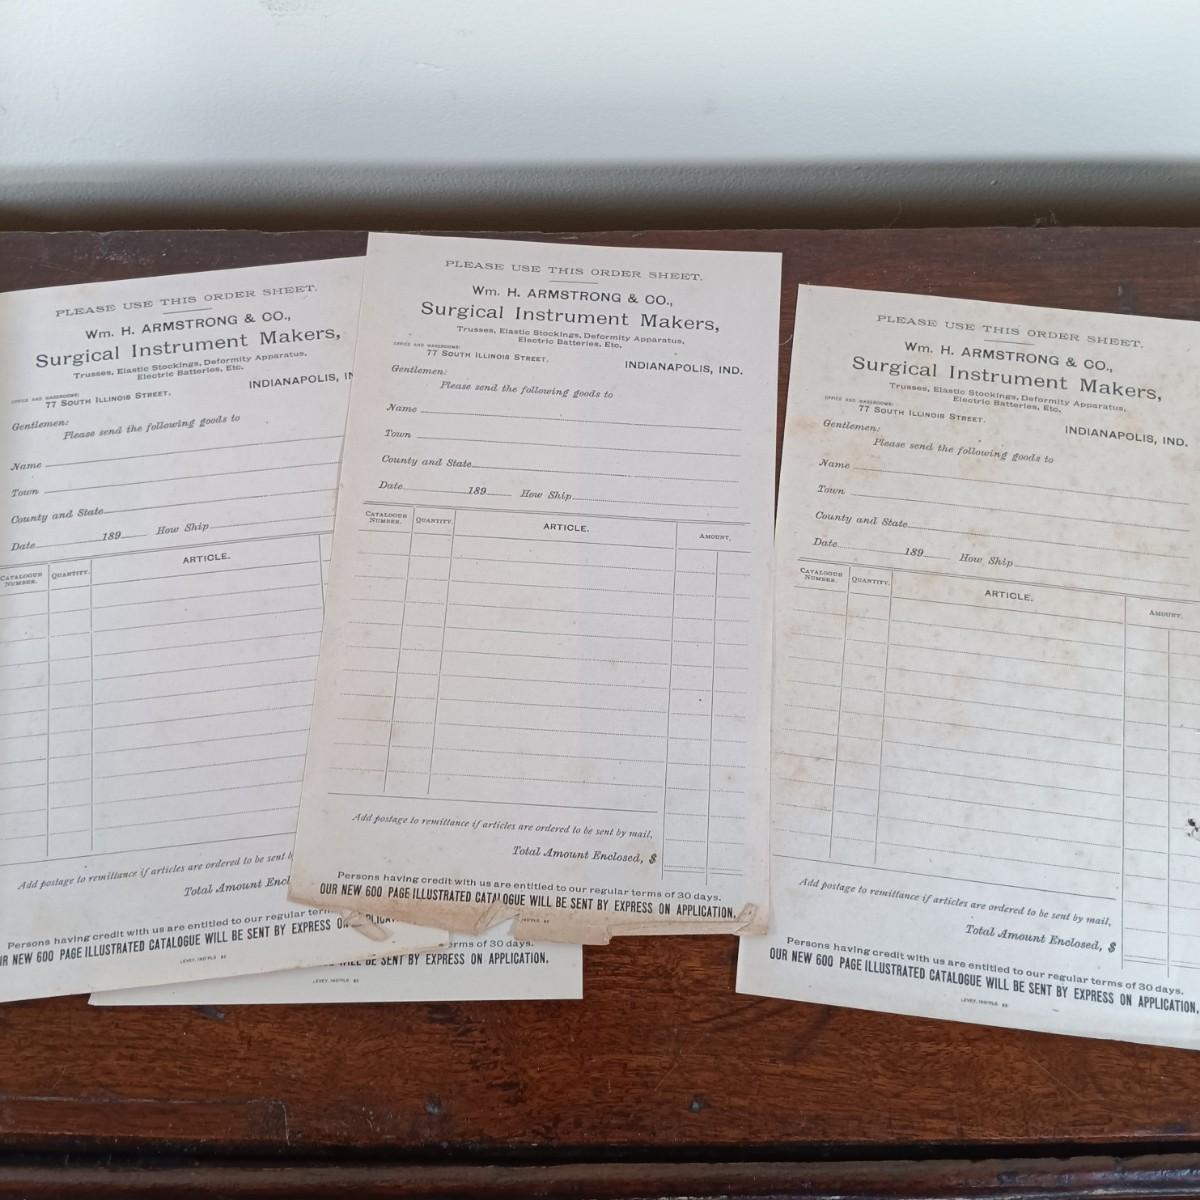 PLEASE USE THIS ORDER SHEET.
Wm. H. ARMSTRONG & CO.,
Surgical Instrument Makers,
Trusses, Elastic Stockings, Deformity Apparatus,
Electric Batteries, Etc.
OFFICE AND WAREROOMS:
77 SOUTH ILLINOIS STREET.
INDIANAPOLIS, IN
Gentlemen:
Please send the following goods to
Name
Town
County and State
Date 189 How Ship
CATALOGUE NUMBER. QUANTITY. ARTICLE.
Add postage to remittance if articles are ordered to be sent b
Total Amount Encl
Persons having credit with us are entitled to our regular term
UR NEW 600 PAGE ILLUSTRATED CATALOGUE WILL BE SENT BY EXPRESS ON APPLICA
LEVEY, IND'PLS
PLEASE USE THIS ORDER SHEET.
Wm. H. ARMSTRONG & CO.,
Surgical Instrument Makers,
Trusses, Elastic Stockings, Deformity Apparatus,
Electric Batteries, Etc.
OFFICE AND WAREROOMS:
77 SOUTH ILLINOIS STREET.
INDIANAPOLIS, IND.
Gentlemen:
Please send the following goods to
Name
Town
County and State
Date 189 How Ship
CATALOGUE NUMBER. QUANTITY. ARTICLE. AMOUNT.
Add postage to remittance if articles are ordered to be sent by mail,
Total Amount Enclosed, $
Persons having credit with us are entitled to our regular terms of 30 days.
OUR NEW 600 PAGE ILLUSTRATED CATALOGUE WILL BE SENT BY EXPRESS ON APPLICATION.
erms of 30 days.
WILL BE SENT BY EXPRESS ON APPLICATION.
LEVEY, IND'PLS
PLEASE USE THIS ORDER SHEET.
Wm. H. ARMSTRONG & CO.,
Surgical Instrument Makers,
Trusses, Elastic Stockings, Deformity Apparatus,
Electric Batteries, Etc.
OFFICE AND WAREROOMS:
77 SOUTH ILLINOIS STREET.
INDIANAPOLIS, IND.
Gentlemen:
Please send the following goods to
Name
Town
County and State
Date 189 How Ship
CATALOGUE NUMBER. QUANTITY. ARTICLE. AMOUNT.
Add postage to remittance if articles are ordered to be sent by mail,
Total Amount Enclosed, $
Persons having credit with us are entitled to our regular terms of 30 days.
OUR NEW 600 PAGE ILLUSTRATED CATALOGUE WILL BE SENT BY EXPRESS ON APPLICATION.
LEVEY, IND'PLS